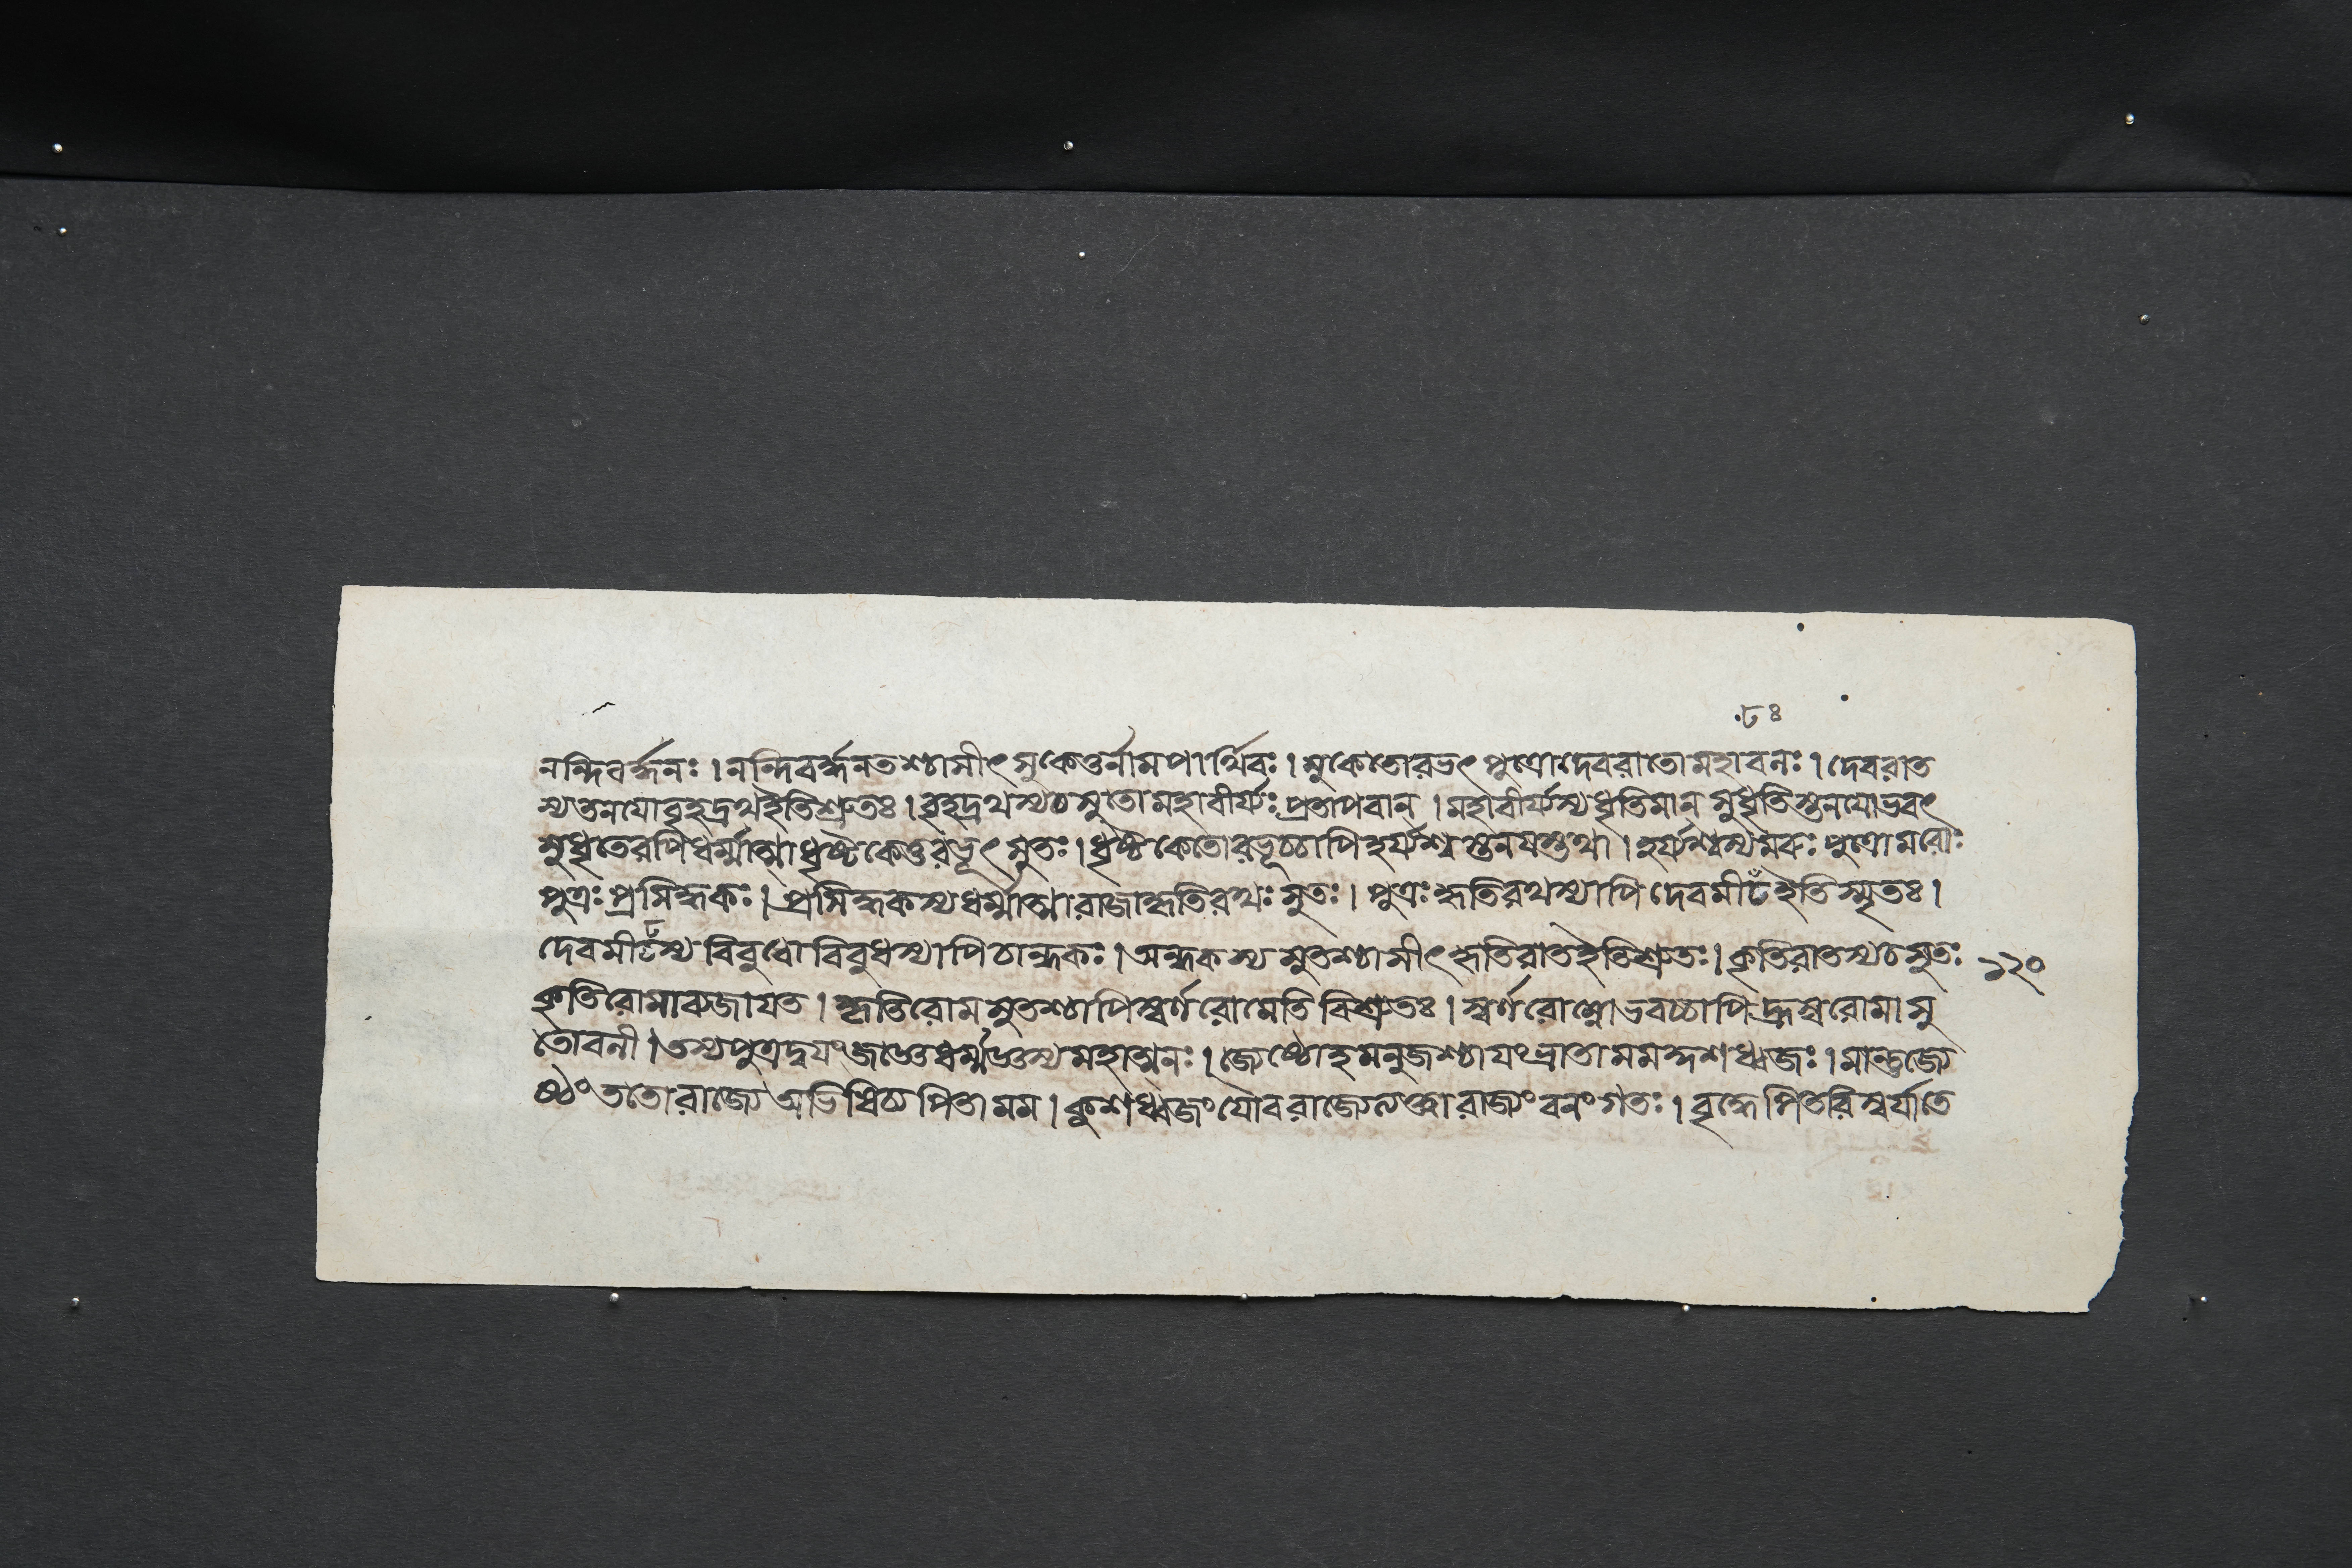 ৮৪
নন্দিবর্দ্ধনঃ । নন্দিবর্দ্ধনতশ্চাসীৎ সুকেতুর্নামপার্থিবঃ । সুকেতোরভৎ পুত্রোদেবরাতোমহাবলঃ । দেবরাত
স্যতনযোবৃহদ্রথইতিশ্রুতঃ । বৃহদ্রথস্যচসুতোমহাবীর্য্যঃ প্রতাপবান্ । মহাবীর্য্যস্যধৃতিমান্ সুধৃতিস্তনযোভবৎ
সুধৃতেরপিধর্ম্মাত্মাধৃষ্টকেতুরভূৎ সুতঃ । ধৃষ্টকেতোরভূচ্চাপিহর্য্যশ্বস্তনযস্তথা । হর্য্যশ্বস্যমরুঃ পুত্রোমরোঃ
পুত্রঃ প্রসিদ্ধকঃ । প্রসিদ্ধকস্যধর্ম্মাত্মারাজাকৃতিরথঃ সুতঃ । পুত্রঃ কৃতিরথস্যাপি দেবমীঢ ইতিস্মৃতঃ ।
দেবমীঢস্য বিবুধোবিবুধস্যাপিচান্ধকঃ । অন্ধকস্য সুতশ্চাসীৎ কৃতিরাতইতিশ্রুতঃ । কৃতিরাতস্যচসুতঃ ১২০
কৃতিরোমাবজাযত । কৃতিরোমসুতশ্চাপিস্বর্ণরোমেতিবিশ্রুতঃ । স্বর্ণরোম্নোভবচ্চাপিহ্রস্বরোমাসু
তোবলী । তস্যপুত্রদ্বযংজজ্ঞেধর্ম্মজ্ঞস্যমহাত্মনঃ । জ্যেষ্ঠোহমনুজশ্চাযংভ্রাতামমকুশধ্বজঃ । মান্তুজ্যে
ষ্ঠংততোরাজ্যেঅভিষিচ্যপিতামম । কুশধ্বজং যৌবরাজ্যেলব্ধ্বারাজ্যংবনংগতঃ । বৃদ্ধেপিতরিস্বর্যাতে